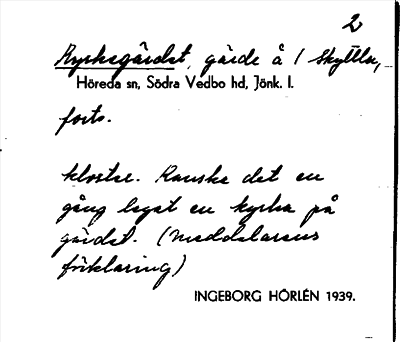 2
Kyrkogärdet, gärde å 1 Skyttla,
Höreda sn, Södra Vedbo hd, Jönk. l.
forts.
kloster. Kanske det en
gång legat en kyrka på
gärdet. (Meddelarens
förklaring)
INGEBORG HÖRLÉN 1939.